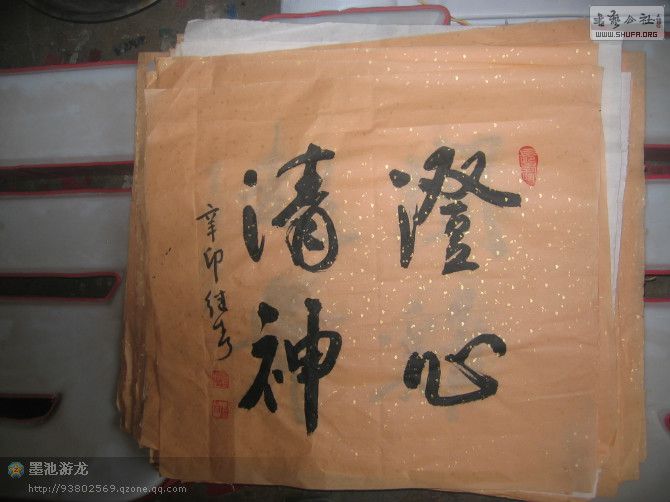 澄心
清神
辛卯
书法公社
WWW.SHUFA.ORG
墨池游龙
http://93802569.qzone.qq.com